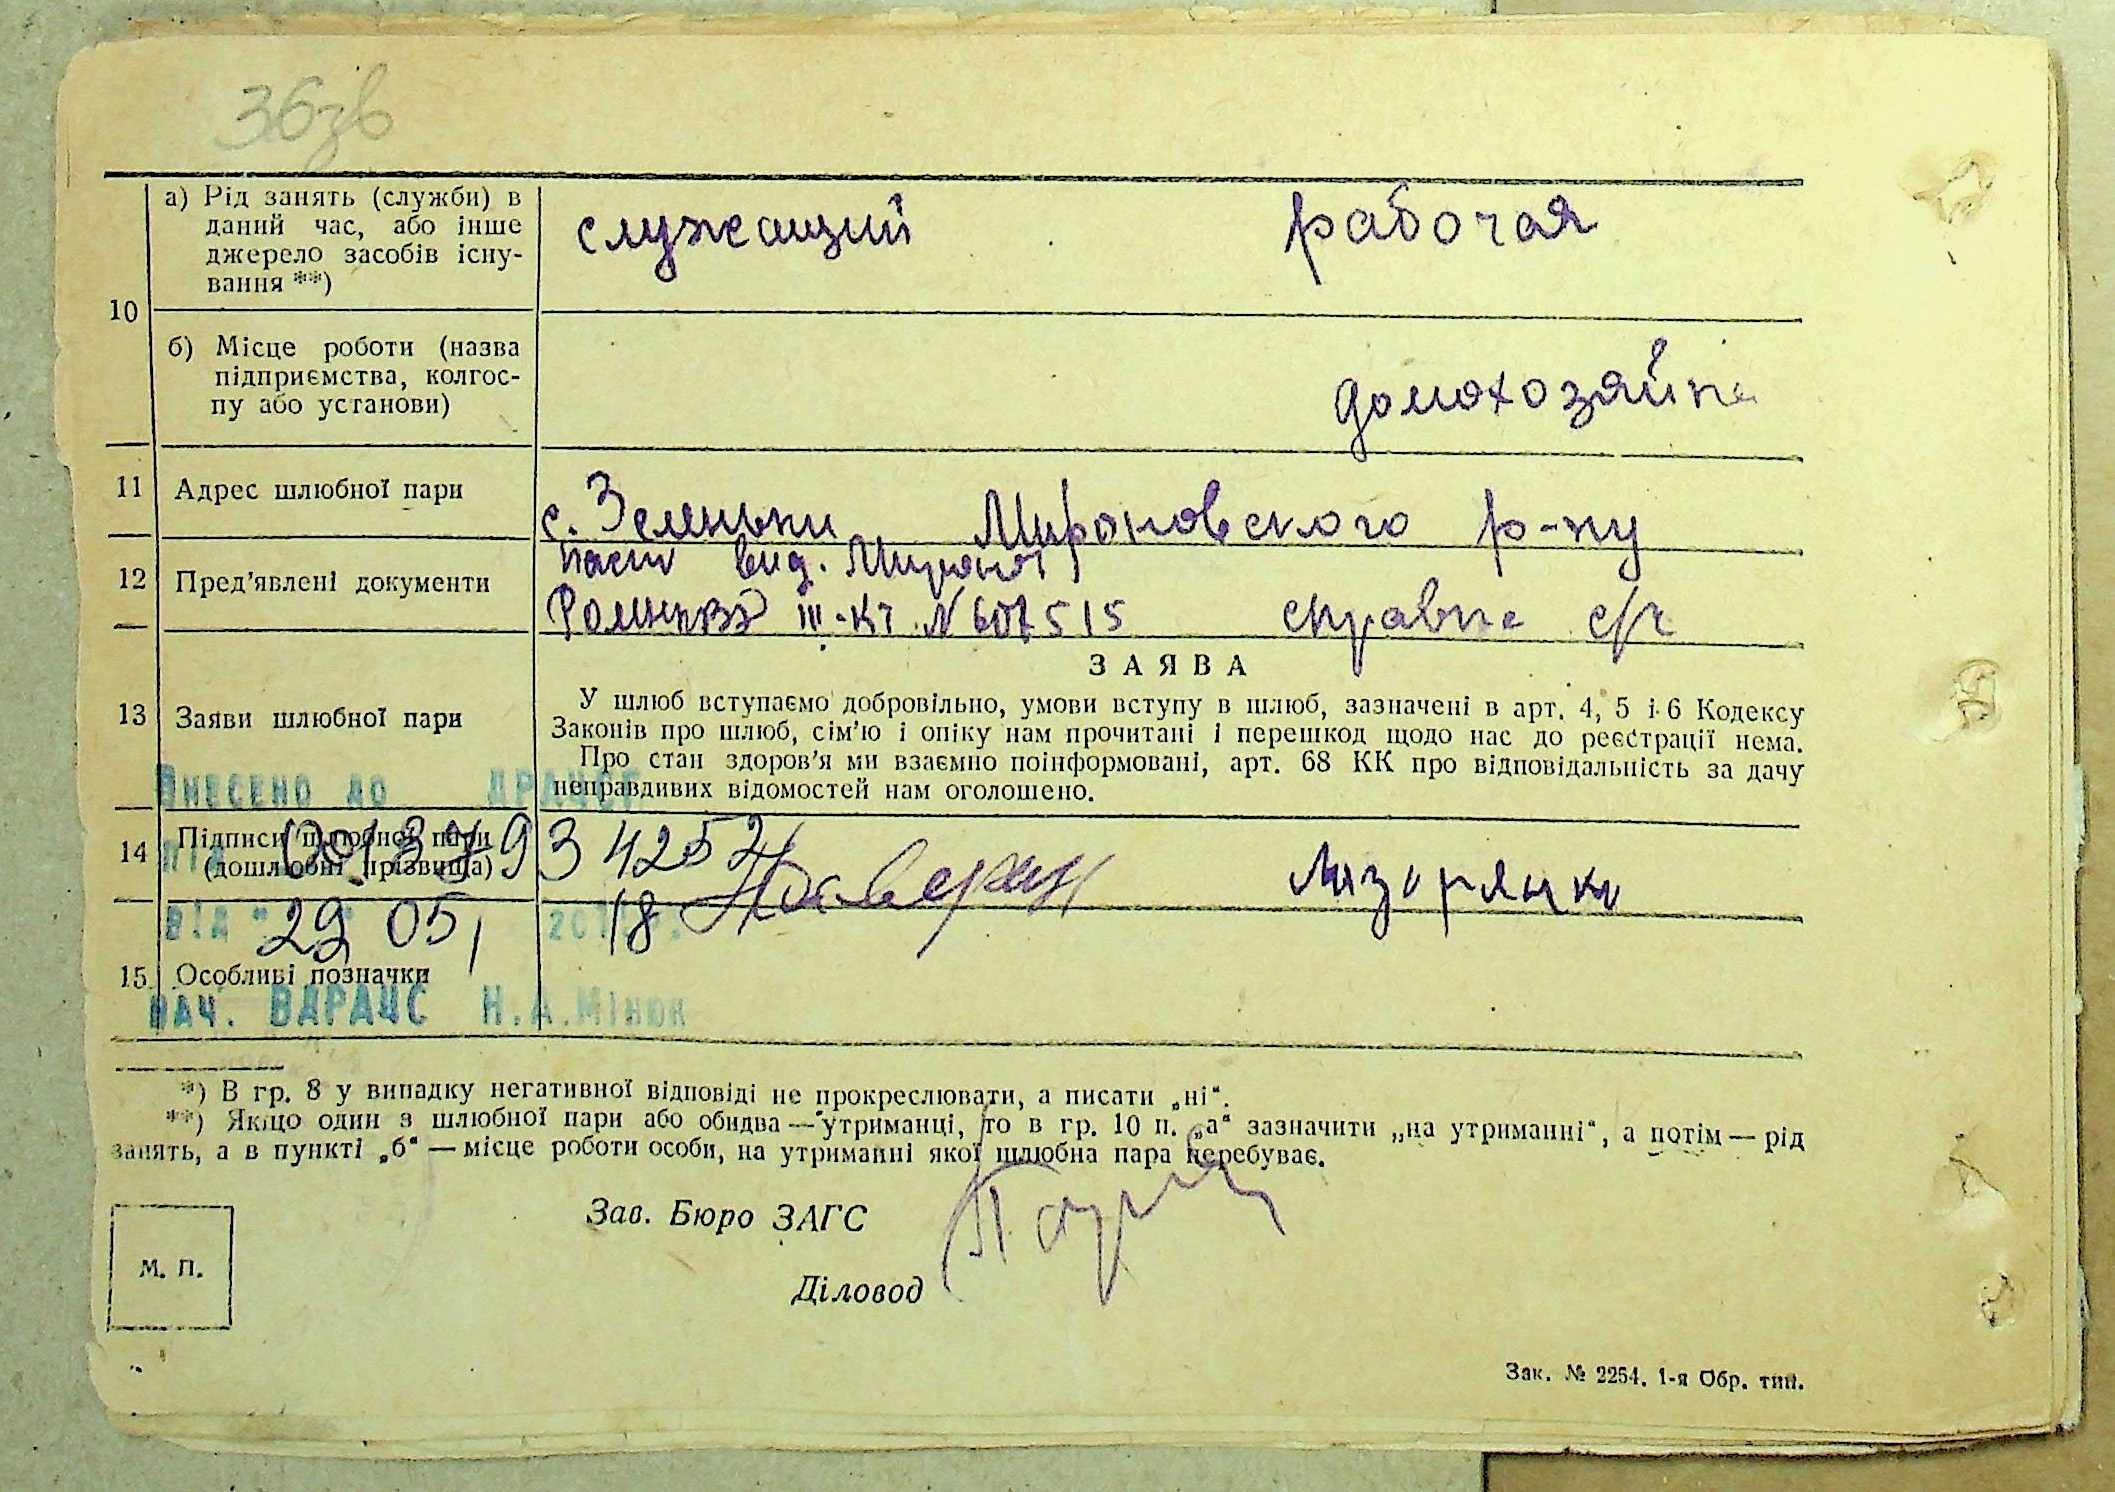 36зв
а) Рід занять (служби) в
даний час, або інше
джерело засобів існу-
вання **)
служащий рабочая
10
б) Місце роботи (назва
підприємства, колгос-
пу або установи)
домохозяйка
11 Адрес шлюбної пари
с. Зеленьки Мироновского р-ну
12 Пред'явлені документи
пасп вид. Мирон
III-КЧ № 607515 справка с/с
ЗАЯВА
13 Заяви шлюбної пари
У шлюб вступаємо добровільно, умови вступу в шлюб, зазначені в арт. 4, 5 і 6 Кодексу
Законів про шлюб, сім'ю і опіку нам прочитані і перешкод щодо нас до реєстрації нема.
Про стан здоров'я ми взаємно поінформовані, арт. 68 КК про відповідальність за дачу
неправдивих відомостей нам оголошено.
Внесено до ДРАЦСГ
14 Підписи шлюбної пари
(дошлюбні прізвища)
00137934252
від " 29 " 05, 2018р.
15 Особливі позначки
нач. ВДРАЦС Н.А.Мінюк
*) В гр. 8 у випадку негативної відповіді не прокреслювати, а писати „ні“.
**) Якщо один з шлюбної пари або обидва — утриманці, то в гр. 10 п. „а“ зазначити „на утриманні“, а потім — рід
занять, а в пункті „б“ — місце роботи особи, на утриманні якої шлюбна пара перебуває.
Зав. Бюро ЗАГС
Діловод
М. П.
Зак. № 2254. 1-я Обр. тип.